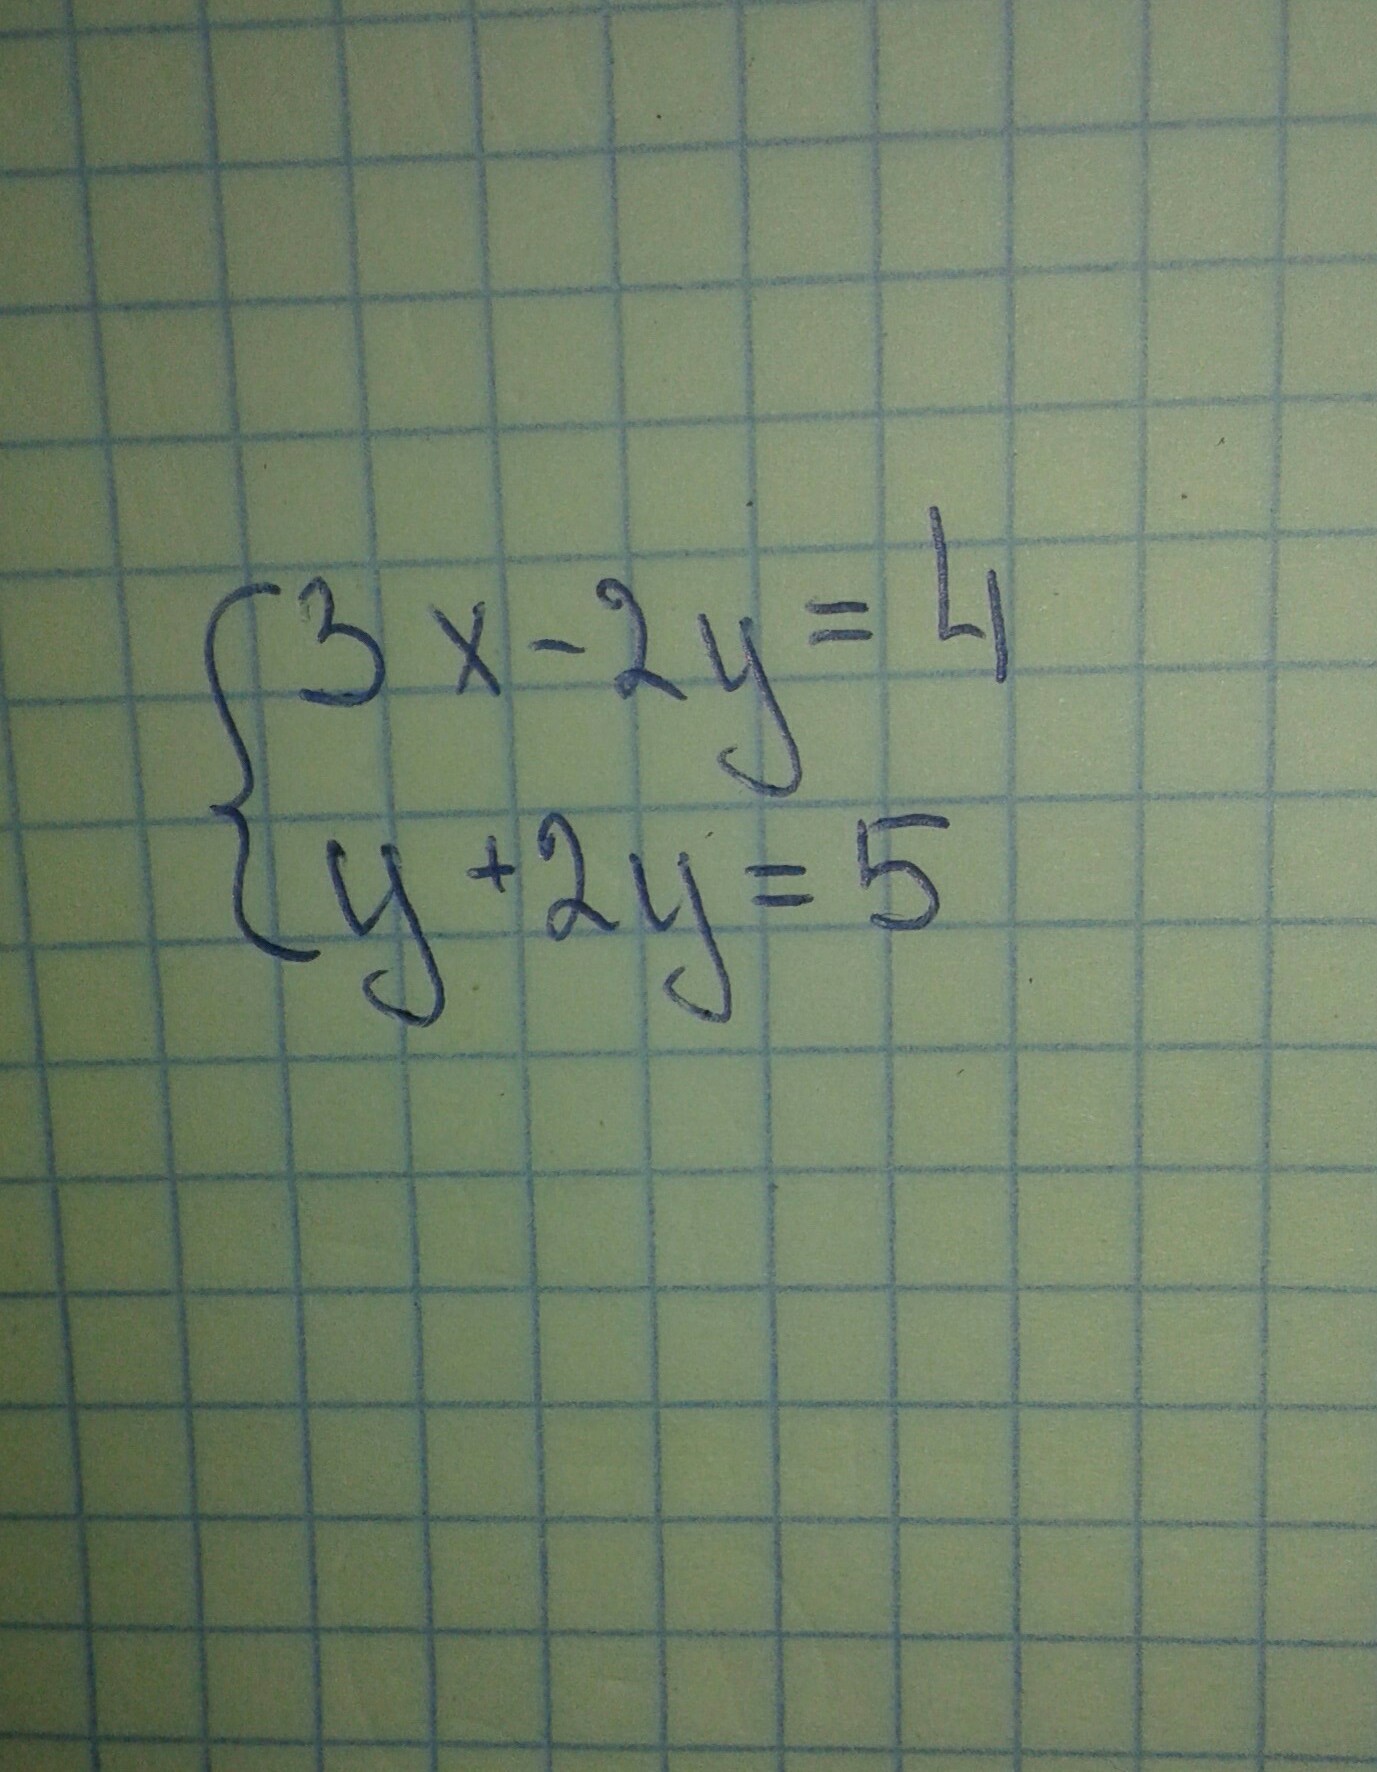 3x-2y=4
y+2y=5